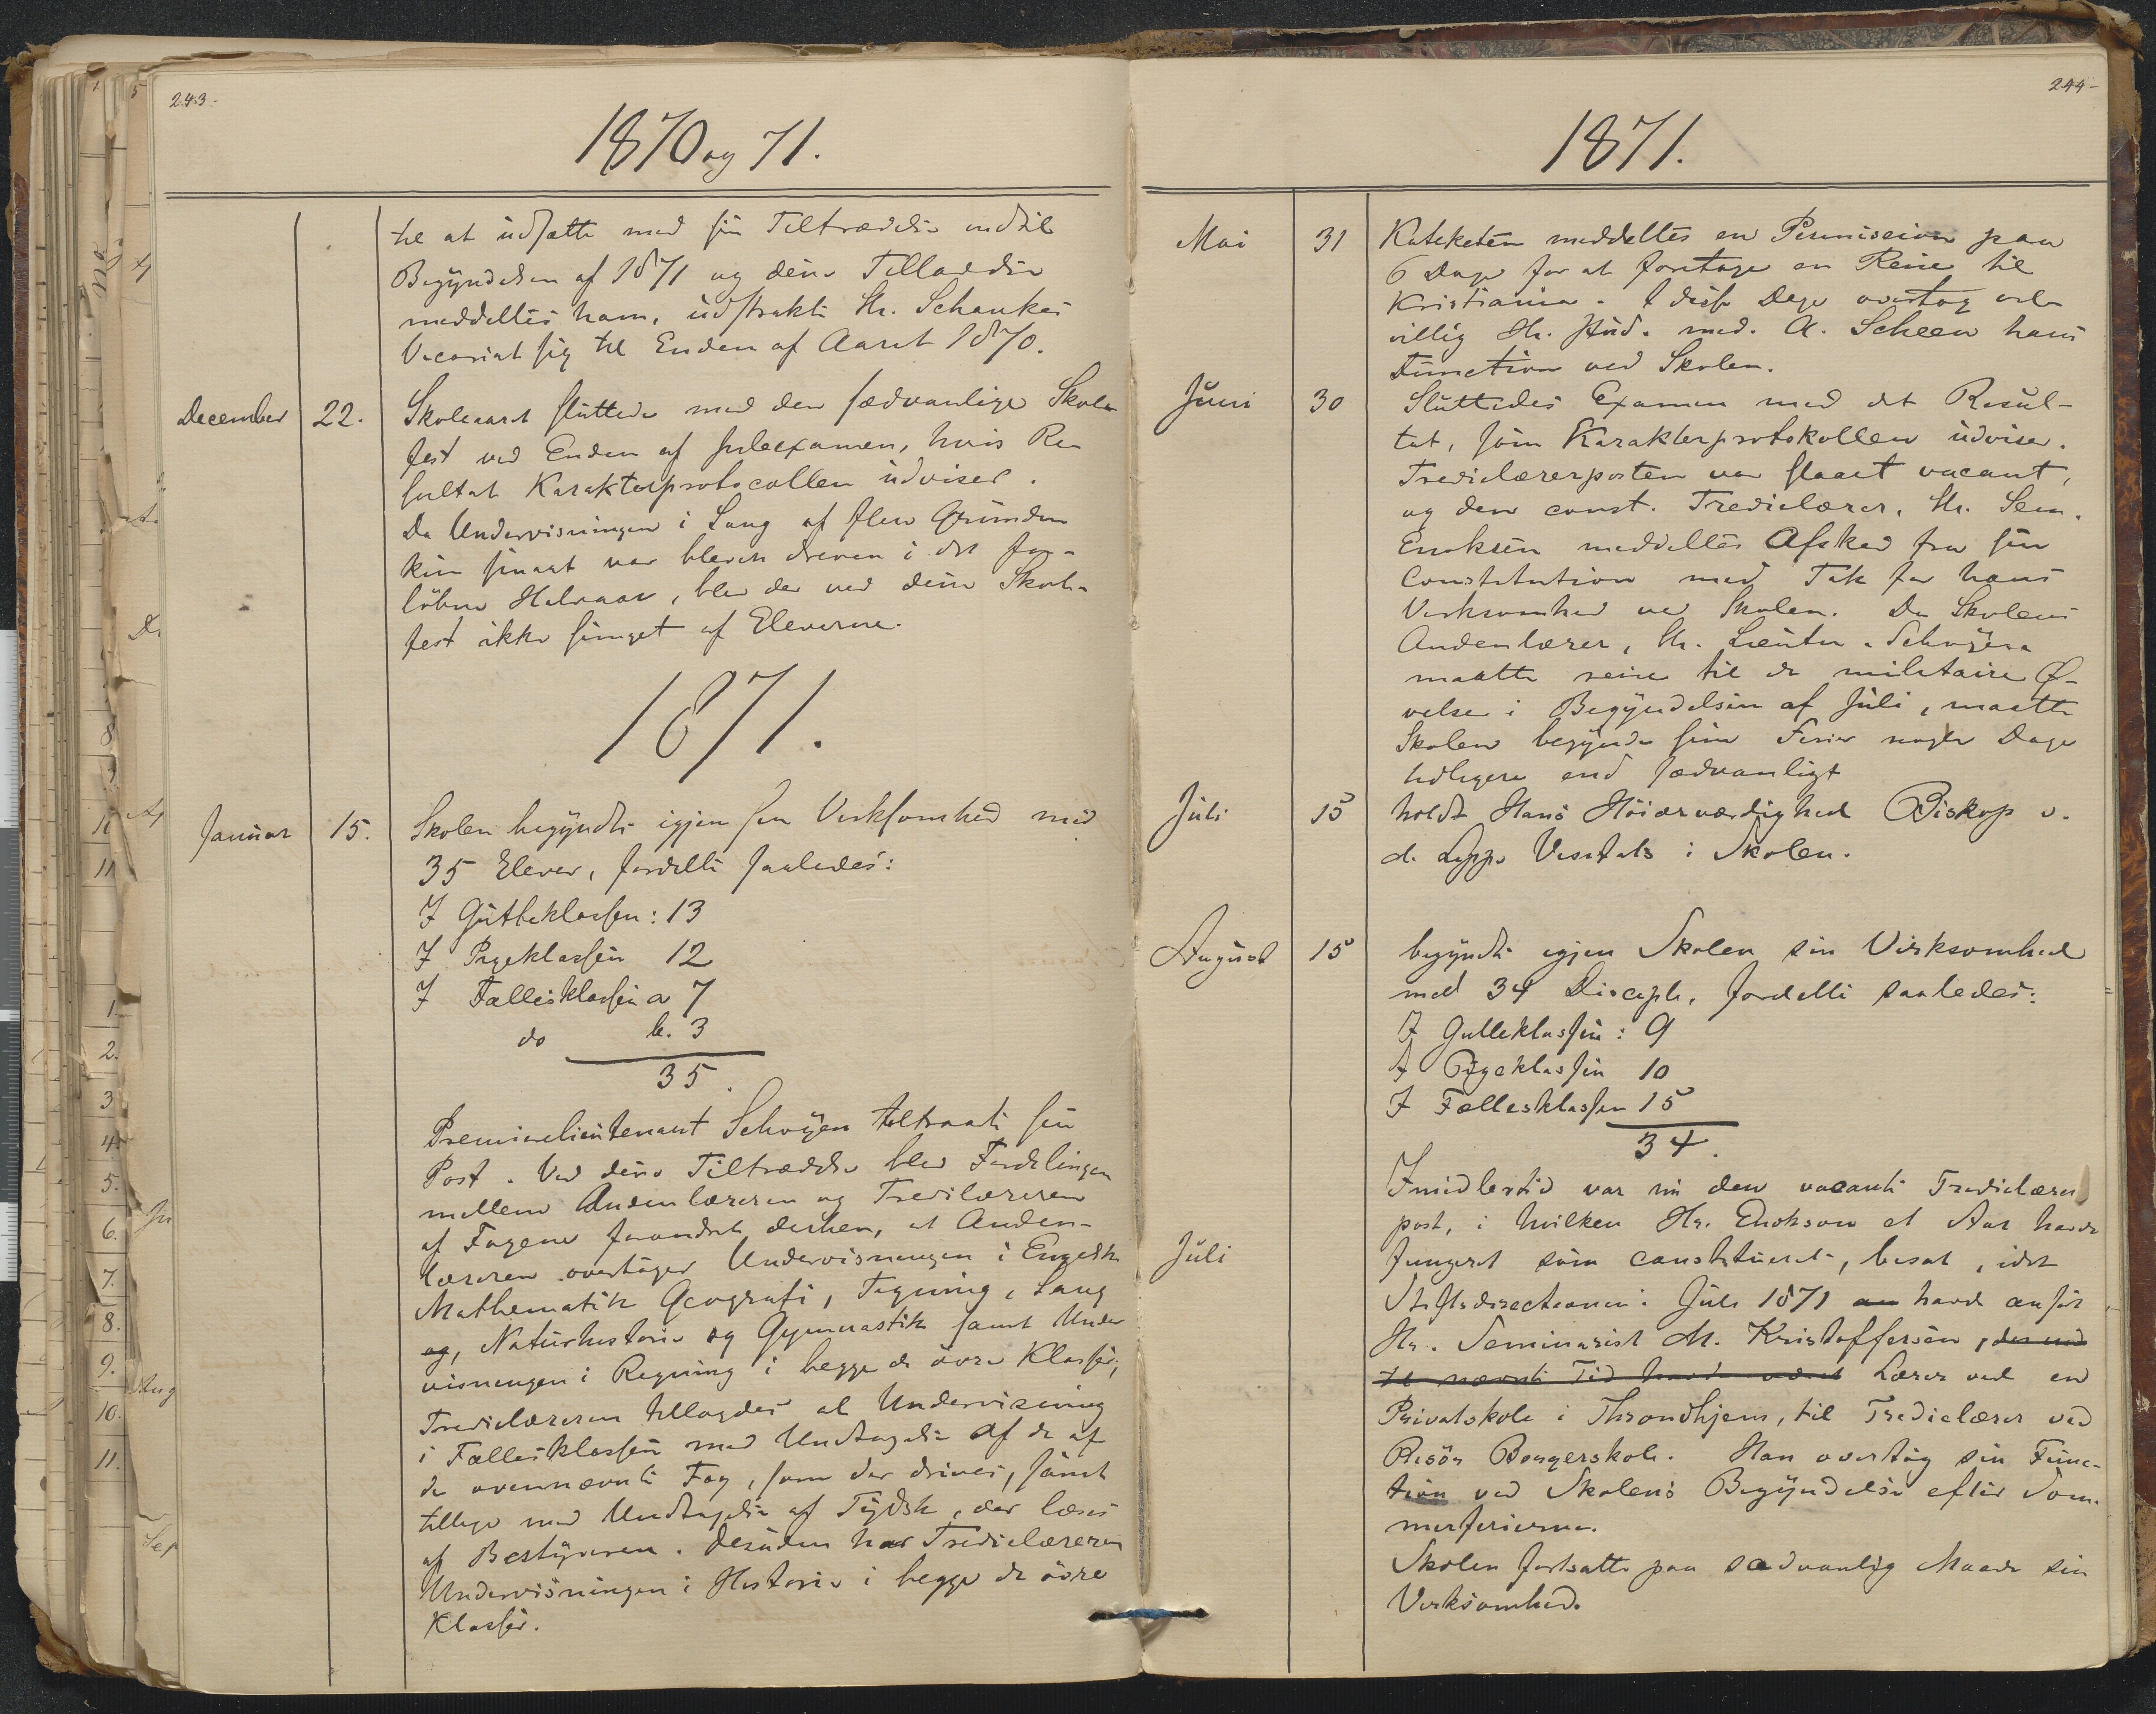 243-
1870 og 71.
til at udsætte med sin Tiltrædelse indtil
Begyndelsen af 1871 og denne Tilladelse
meddeltes ham, udstrakte Hr. Schankes
Vicariat sig til Enden af Aaret 1870.
December 22. Skoleaaret sluttede med den sædvanlige Skole-
fest ved Enden af Juleexamen, hvis Re-
sultat Karakterprotocollen udviser.
Da Undervisningen i Sang af flere Grunde
kun simart var bleven dreven i det for-
löbne Halvaar, blev der ved denne Skole-
fest ikke sunget af Eleverne.
1871.
Januar 15. Skolen begyndte igjen sin Virksomhed med
35 Elever, fordelte saaledes:
I Gutteklassen: 13
I Pigeklassen 12
I Fællesklassen a 7
do b. 3
35.
Premierlieutenant Schöyen tiltraadte sin
Post. Ved dennes Tiltrædelse blev Fordelingen
mellem Andenlæreren og Tredielæreren
af Fagene forandret derhen, at Anden-
læreren overtager Undervisningen i Engelsk
Mathematik Geografi, Tegning, Sang
og, Naturhistorie og Gymnastik samt Under
visningen i Regning i begge de övre Klasser;
Tredielæreren tillagdes al Undervisning
i Fællesklassen med Undtagelse af de af
de ovennævnte Fag, som der drives, samt
tillige med Undtagelse af Tydsk, der læses
af Bestyreren. Desuden har Tredielæreren
Undervisningen i Historie i begge de övre
Klasser.
244-
1871.
Mai 31 Kateketen meddeltes en Permission paa
6 Dage for at foretage en Reise til
Kristiania. I disse Dage overtog vel-
villig Hr. stud. med. A. Scheen hans
Function ved Skolen.
Juni 30 Sluttedes Examen med det Resul-
tat, som Karakterprotokollen udviser.
Tredielærerposten var slaaet vacant,
og den const. Tredielærer, Hr. Sem.
Enoksen meddeltes Afsked fra sin
Constitution med Tak for hans
Virksomhed ved Skolen. Da Skolens
Andenlærer, Hr. Lieuten. Schöyen
maatte reise til de militaire Ø-
velser i Begyndelsen af Juli, maatte
Skolen begynde sine Ferier nogle Dage
tidligere end sædvanligt
Juli 15 holdt Hans Höiærværdighed Biskop v.
d. Lippe Visitats i Skolen.
August 15 begyndte igjen Skolen sin Virksomhed
med 34 Disciple, fordelte saaledes:
I Gutteklassen: 9
I Pigeklassen 10
I Fællesklassen 15
34.
Imidlertid var nu den vacante Tredielærer
post, i hvilken Hr. Enokson et Aar havde
Juli fungeret som constitueret, besat, idet
Stiftsdirectionen i Juli 1871 an havde ansat
Hr. Seminarist M. Kristoffersen, der ind
til nævnte Tid havde været Lærer ved en
Privatskole i Throndhjem, til Tredielærer ved
Risör Borgerskole. Han overtog sin Func-
tion ved Skolens Begyndelse efter Som-
merferierne.
Skolen fortsatte paa sædvanlig Maade sin
Virksomhed.